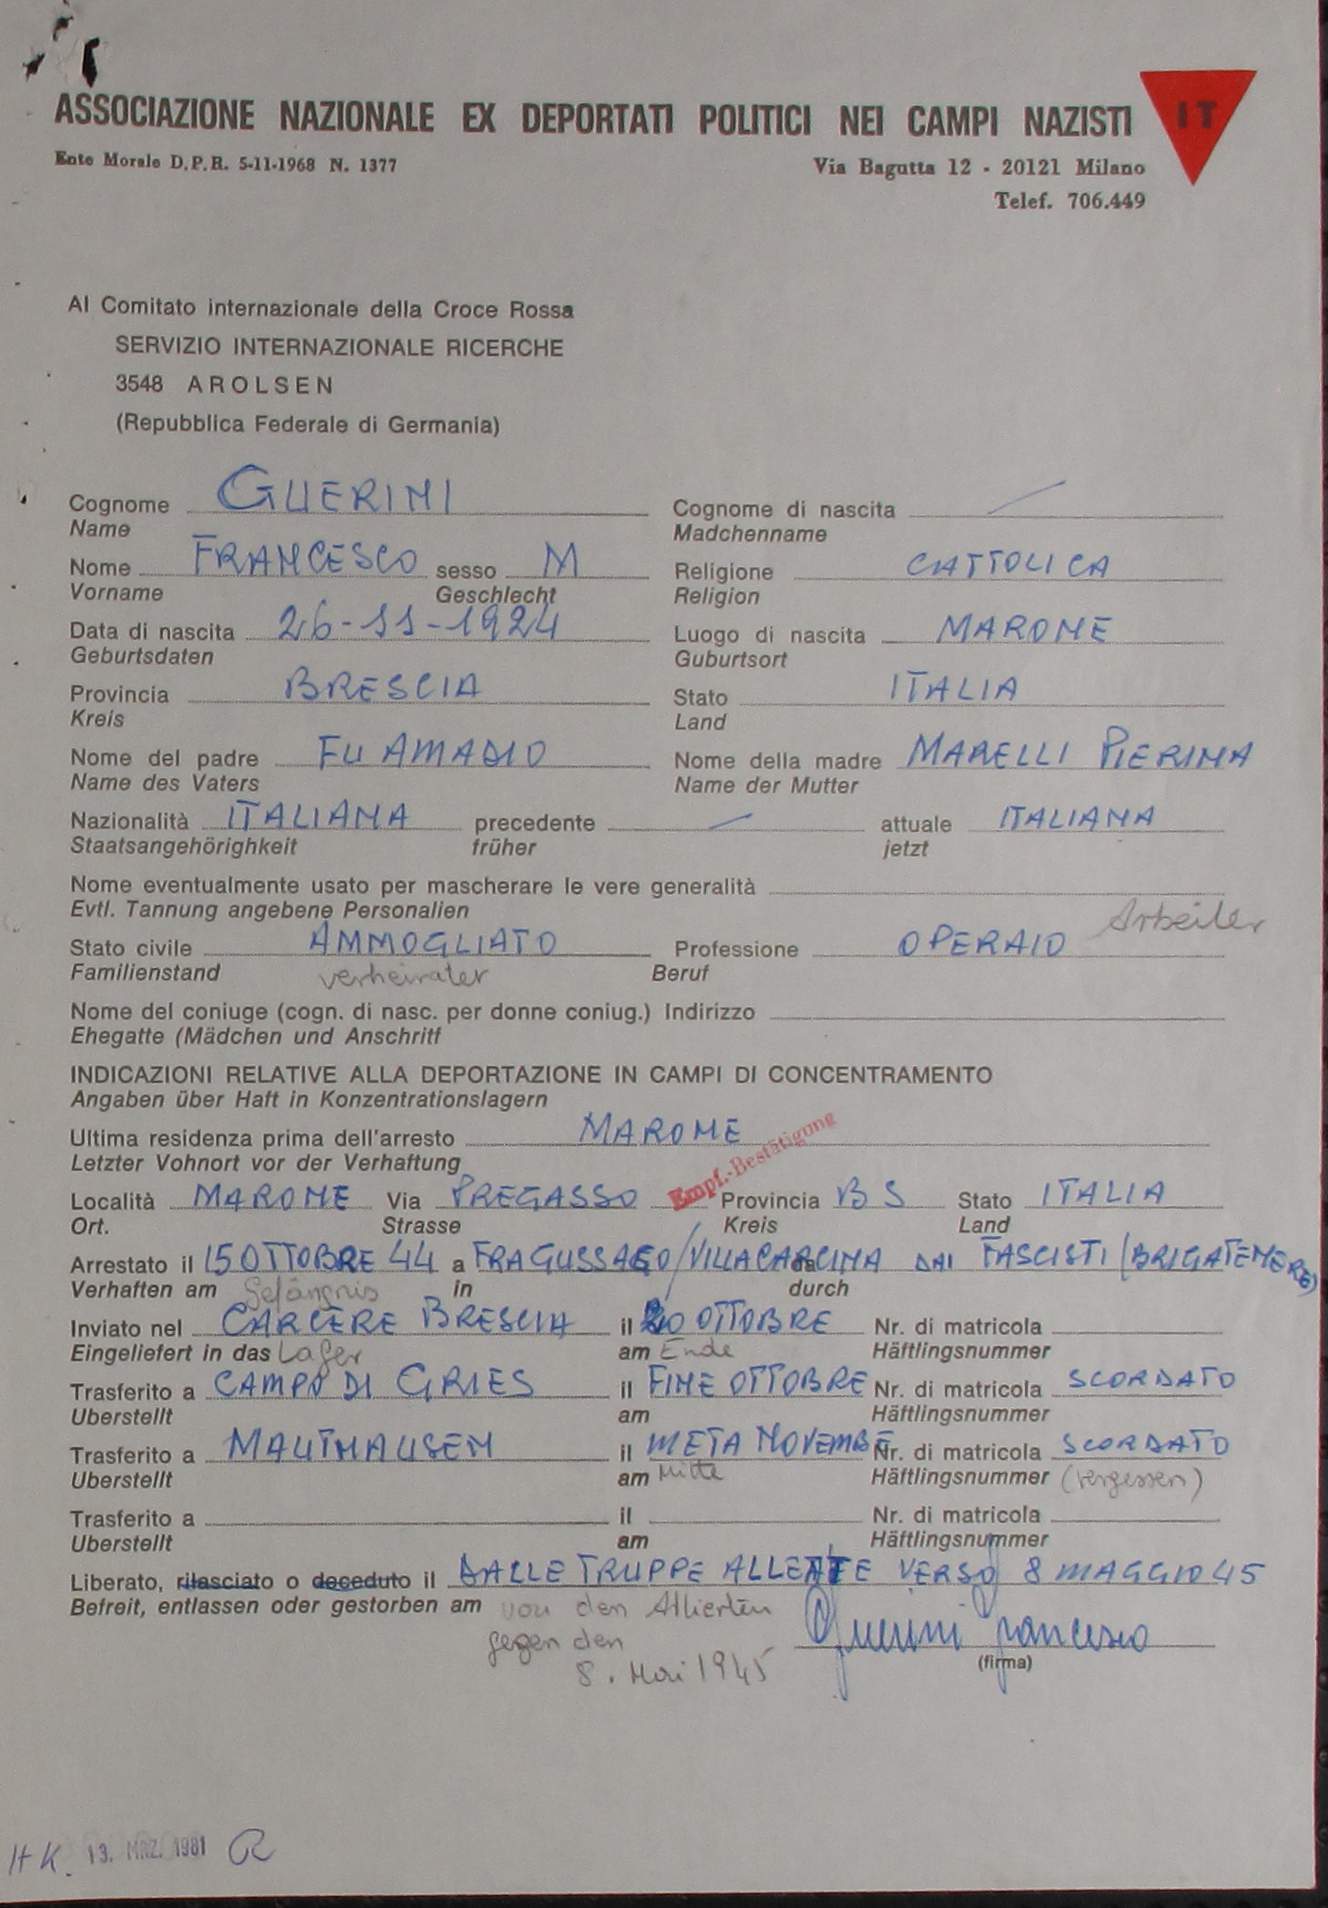 ASSOCIAZIONE NAZIONALE EX DEPORTATI POLITICI NEI CAMPI NAZISTI IT
Ente Morale D.P.R. 5-11-1968 N. 1377 Via Bagutta 12 - 20121 Milano
Telef. 706.449
Al Comitato internazionale della Croce Rossa
SERVIZIO INTERNAZIONALE RICERCHE
3548 AROLSEN
(Repubblica Federale di Germania)
Cognome GUERINI Cognome di nascita /
Name Madchenname
Nome FRANCESCO sesso M Religione CATTOLICA
Vorname Geschlecht Religion
Data di nascita 26-11-1924 Luogo di nascita MARONE
Geburtsdaten Guburtsort
Provincia BRESCIA Stato ITALIA
Kreis Land
Nome del padre FU AMADIO Nome della madre MARELLI PIERINA
Name des Vaters Name der Mutter
Nazionalità ITALIANA precedente / attuale ITALIANA
Staatsangehörighkeit früher jetzt
Nome eventualmente usato per mascherare le vere generalità
Evtl. Tannung angebene Personalien Arbeiter
Stato civile AMMOGLIATO Professione OPERAIO
Familienstand verheiratet Beruf
Nome del coniuge (cogn. di nasc. per donne coniug.) Indirizzo
Ehegatte (Mädchen und Anschritf
INDICAZIONI RELATIVE ALLA DEPORTAZIONE IN CAMPI DI CONCENTRAMENTO
Angaben über Haft in Konzentrationslagern
Ultima residenza prima dell'arresto MARONE
Letzter Vohnort vor der Verhaftung Empf.-Bestätigung
Località MARONE Via PREGASSO Provincia BS Stato ITALIA
Ort. Strasse Kreis Land
Arrestato il 15 OTTOBRE 44 a FRA GUSSAGO/VILLACARCINA da DAI FASCISTI (BRIGATE NERE)
Verhaften am Gefängnis in durch
Inviato nel CARCERE BRESCIA il 20 OTTOBRE Nr. di matricola
Eingeliefert in das Lager am Ende Häftlingsnummer
Trasferito a CAMPO DI GRIES il FINE OTTOBRE Nr. di matricola SCORDATO
Uberstellt am Häftlingsnummer
Trasferito a MAUTHAUSEN il META NOVEMBE Nr. di matricola SCORDATO
Uberstellt am Mitte Häftlingsnummer (vergessen)
Trasferito a il Nr. di matricola
Uberstellt am Häftlingsnummer
Liberato, rilasciato o deceduto il DALLE TRUPPE ALLEATE VERSO 8 MAGGIO 45
Befreit, entlassen oder gestorben am von den Allierten
gegen den Guerini Francesco
8. Mai 1945 (firma)
HK. 13. MRZ. 1981